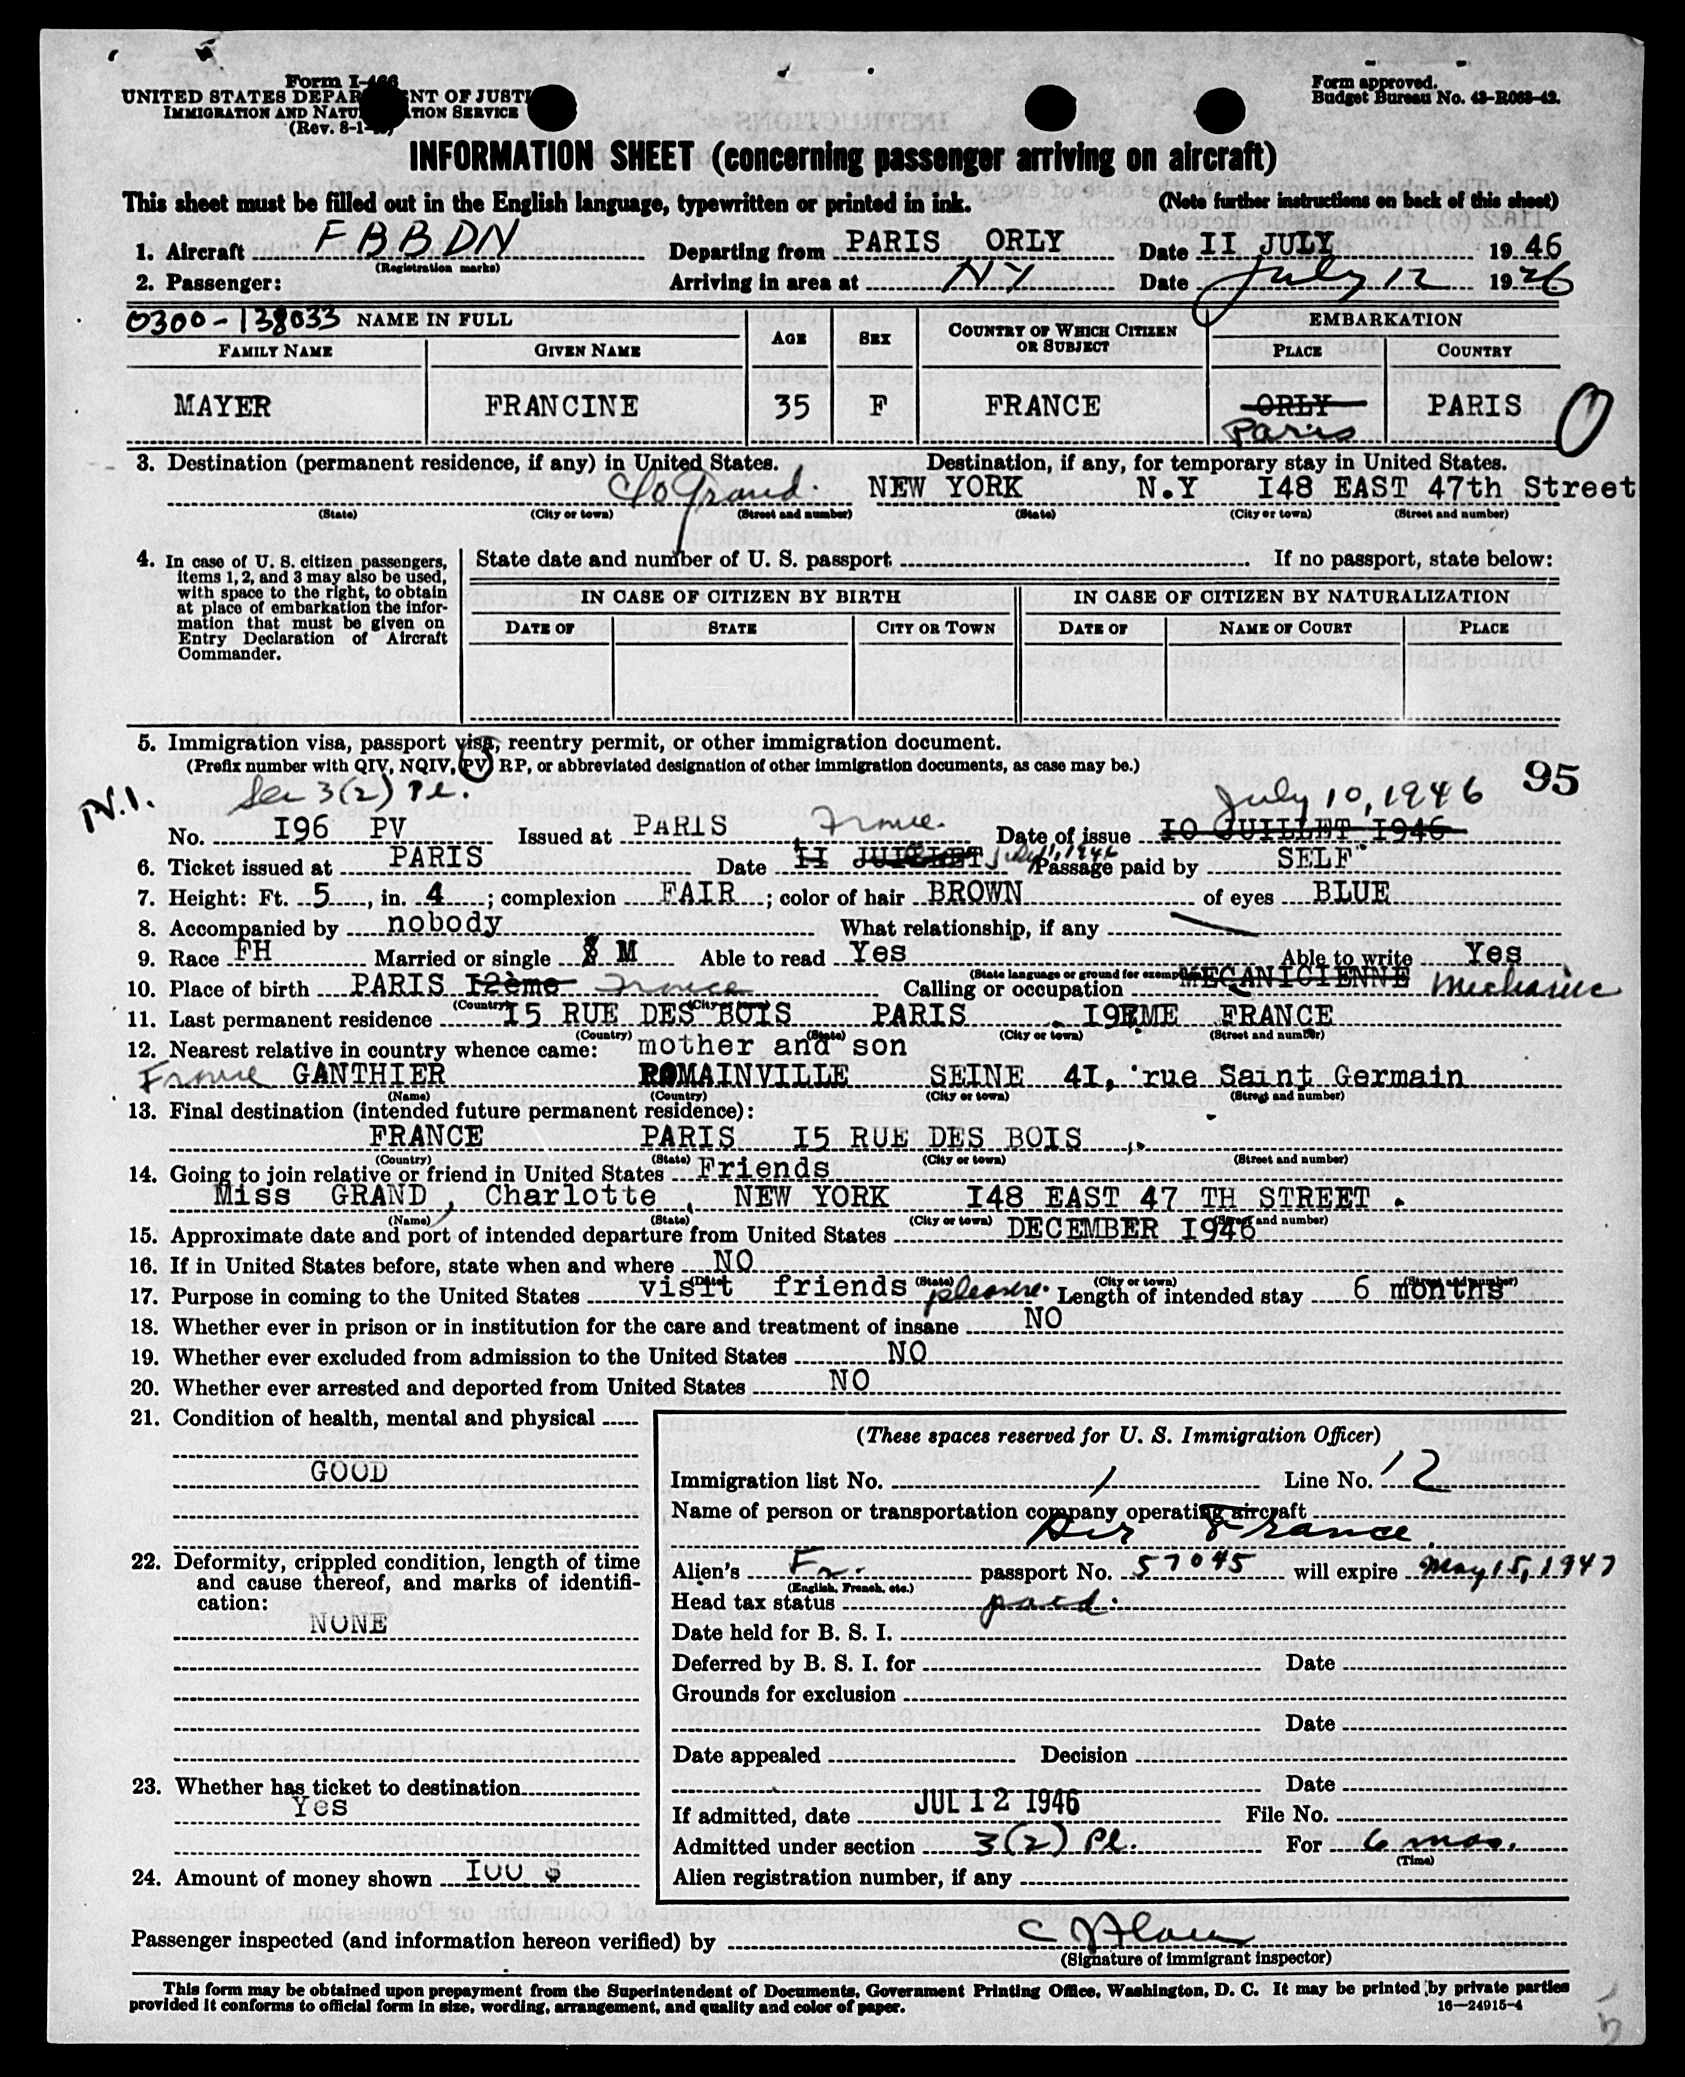 Form I-466
UNITED STATES DEPARTMENT OF JUSTICE
IMMIGRATION AND NATURALIZATION SERVICE
(Rev. 8-1-
Form approved.
Budget Bureau No. 43-R063-42.
INFORMATION SHEET (concerning passenger arriving on aircraft)
This sheet must be filled out in the English language, typewritten or printed in ink. (Note further instructions on back of this sheet)
1. Aircraft F B B D N Departing from PARIS ORLY Date II JULY 19 46
(Registration marks)
2. Passenger: Arriving in area at NY Date July 12 19 46
0300-138033 NAME IN FULL AGE SEX COUNTRY OF WHICH CITIZEN OR SUBJECT EMBARKATION
FAMILY NAME GIVEN NAME PLACE COUNTRY
MAYER FRANCINE 35 F FRANCE ORLY PARIS 0
Paris
3. Destination (permanent residence, if any) in United States. Destination, if any, for temporary stay in United States.
C/o Grand. NEW YORK N.Y I48 EAST 47th Street
(State) (City or town) (Street and number) (State) (City or town) (Street and number)
4. In case of U. S. citizen passengers, items 1, 2, and 3 may also be used, with space to the right, to obtain at place of embarkation the information that must be given on Entry Declaration of Aircraft Commander.
State date and number of U. S. passport If no passport, state below:
IN CASE OF CITIZEN BY BIRTH IN CASE OF CITIZEN BY NATURALIZATION
DATE OF STATE CITY OR TOWN DATE OF NAME OF COURT PLACE
5. Immigration visa, passport visa, reentry permit, or other immigration document.
(Prefix number with QIV, NQIV, PV, RP, or abbreviated designation of other immigration documents, as case may be.)
95
N.I. Sec 3(2) Pl. July 10, 1946
No. I96 PV Issued at PARIS, France. Date of issue IO JUILLET I946
6. Ticket issued at PARIS Date II JUILLET July 11, 1946 Passage paid by SELF
7. Height: Ft. 5, in. 4; complexion FAIR; color of hair BROWN of eyes BLUE
8. Accompanied by nobody What relationship, if any
9. Race FH Married or single S M Able to read Yes Able to write Yes
(State language or ground for exemption)
10. Place of birth PARIS I2ème France Calling or occupation MECANICIENNE Mechanic
(Country) (City or town)
11. Last permanent residence I5 RUE DES BOIS PARIS I9EME FRANCE
(Country) (State) (City or town) (Street and number)
12. Nearest relative in country whence came: mother and son
France GANTHIER ROMAINVILLE SEINE 4I, rue Saint Germain
(Name) (Country) (City or town) (Street and number)
13. Final destination (intended future permanent residence):
FRANCE PARIS I5 RUE DES BOIS
(Country) (State) (City or town) (Street and number)
14. Going to join relative or friend in United States Friends
Miss GRAND, Charlotte, NEW YORK I48 EAST 47 TH STREET.
(Name) (State) (City or town) (Street and number)
15. Approximate date and port of intended departure from United States DECEMBER I946
16. If in United States before, state when and where NO
(Date) (State) (City or town) (Street and number)
17. Purpose in coming to the United States visit friends pleasure. Length of intended stay 6 months
18. Whether ever in prison or in institution for the care and treatment of insane NO
19. Whether ever excluded from admission to the United States NO
20. Whether ever arrested and deported from United States NO
21. Condition of health, mental and physical
GOOD
22. Deformity, crippled condition, length of time and cause thereof, and marks of identification:
NONE
23. Whether has ticket to destination
Yes
24. Amount of money shown I00 $
(These spaces reserved for U. S. Immigration Officer)
Immigration list No. 1 Line No. 12
Name of person or transportation company operating aircraft
Air France
Alien's Fr. passport No. 57045 will expire May 15, 1947
(English, French, etc.)
Head tax status paid.
Date held for B. S. I.
Deferred by B. S. I. for Date
Grounds for exclusion
Date
Date appealed Decision
Date
If admitted, date JUL 12 1946 File No.
Admitted under section 3(2) Pl. For 6 mos.
(Time)
Alien registration number, if any
Passenger inspected (and information hereon verified) by
(Signature of immigrant inspector)
This form may be obtained upon prepayment from the Superintendent of Documents, Government Printing Office, Washington, D. C. It may be printed by private parties
provided it conforms to official form in size, wording, arrangement, and quality and color of paper. 16—24915-4